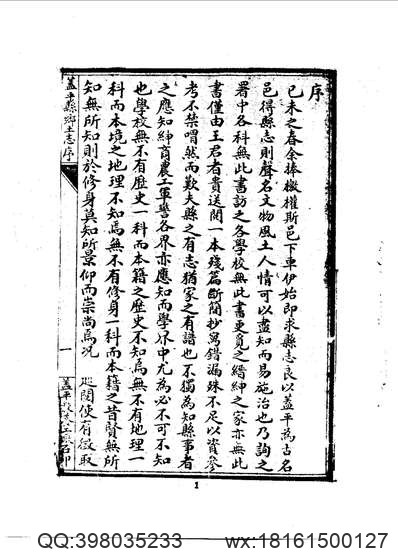 序
己未之春余捧檄權斯邑下車伊始即求縣志良以蓋平為古名
邑得縣志則聲名文物風土人情可以盡知而易施治也乃詢之
署中各科無此書訪之各學校無此書更覓之縉紳之家亦無此
書僅由王君者貴送閱一本殘篇斷簡抄寫錯漏殊不足以資參
考不禁喟然而歎夫縣之有志猶家之有譜也不獨為知縣事者
之應知紳商農工軍警各界亦應知而學界中尤為必不可不知
也學校無不有歷史一科而本籍之歷史不知焉無不有地理一
科而本境之地理不知焉無不有修身一科而本籍之昔賢無所
知無所知則於修身莫知所景仰而崇尚焉況 巡閱使有徵取
蓋平縣鄉土志序
一
蓋平 石印
1
QQ:398035233
wx:18161500127